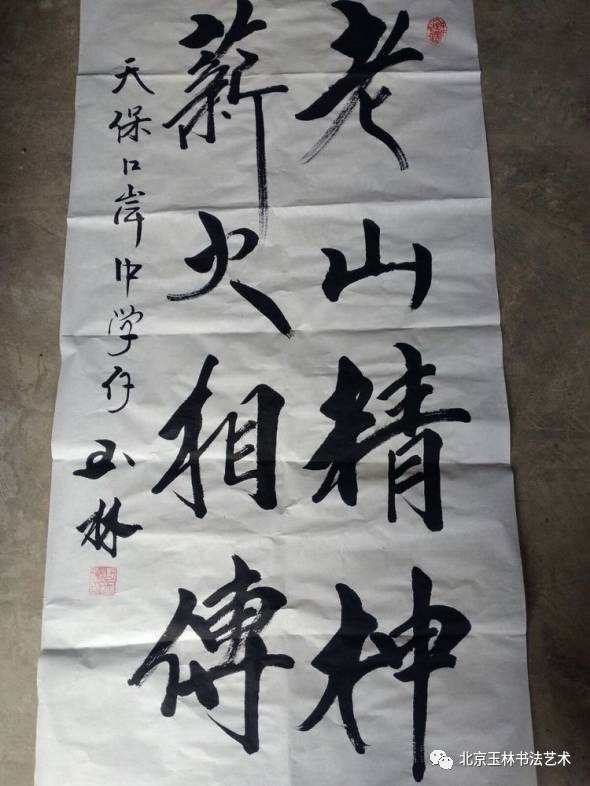 老山精神
薪火相傳
天保口岸中学存
玉林
北京玉林书法艺术